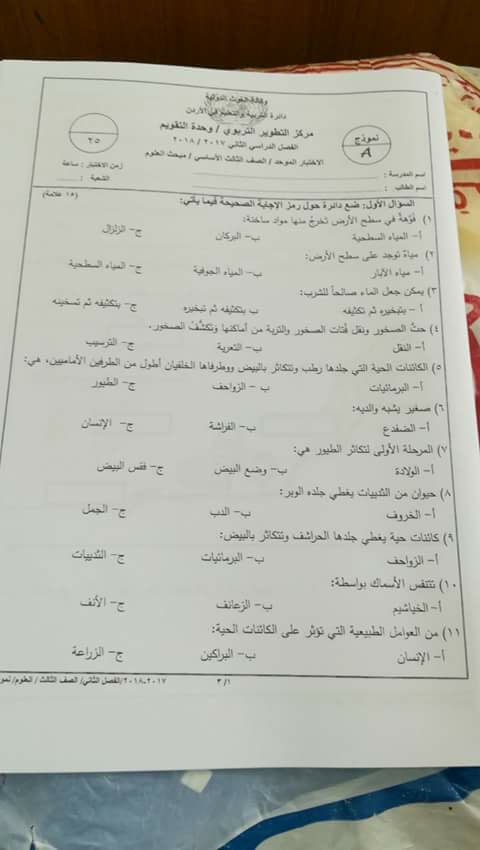 وكالة الغوث الدولية
دائرة التربية والتعليم في الأردن
مركز التطوير التربوي / وحدة التقويم
الفصل الدراسي الثاني ٢٠١٧ / ٢٠١٨
الاختبار الموحد / الصف الثالث الأساسي / مبحث العلوم
نموذج A
٢٥
اسم المدرسة :
زمن الاختبار : ساعة
اسم الطالب :
الشعبة :
السؤال الأول: ضع دائرة حول رمز الإجابة الصحيحة فيما يأتي: (١٥ علامة)
١) فُوّهة في سطح الأرض تخرج منها مواد ساخنة:
أ- المياه السطحية ب- البركان ج- الزلزال
٢) مياهٌ توجد على سطح الأرض:
أ- مياه الآبار ب- المياه الجوفية ج- المياه السطحية
٣) يمكن جعل الماء صالحاً للشرب:
أ - بتبخيره ثم تكثيفه ب بتكثيفه ثم تبخيره ج- بتكثيفه ثم تسخينه
٤) حتُّ الصخور ونقل فُتات الصخور والتربة من أماكنها وتكشُّف الصخور.
أ- النقل ب- التعرية ج- الترسيب
٥) الكائنات الحية التي جلدها رطب وتتكاثر بالبيض ووطرفاها الخلفيان أطول من الطرفين الأماميين، هي:
أ- البرمائيات ب - الزواحف ج- الطيور
٦) صغير يشبه والديه:
أ- الضفدع ب- الفراشة ج- الإنسان
٧) المرحلة الأولى لتكاثر الطيور هي:
أ- الولادة ب- وضع البيض ج- فقس البيض
٨) حيوان من الثدييات يغطي جلده الوبر:
أ- الخروف ب- الدب ج- الجمل
٩) كائنات حية يغطي جلدها الحراشف وتتكاثر بالبيض:
أ- الزواحف ب- البرمائيات ج- الثدييات
١٠) تتنفس الأسماك بواسطة:
أ- الخياشيم ب- الزعانف ج- الأنف
١١) من العوامل الطبيعية التي تؤثر على الكائنات الحية:
أ- الإنسان ب- البراكين ج- الزراعة
١/ ٣
٢٠١٧-٢٠١٨/الفصل الثاني/ الصف الثالث / العلوم/